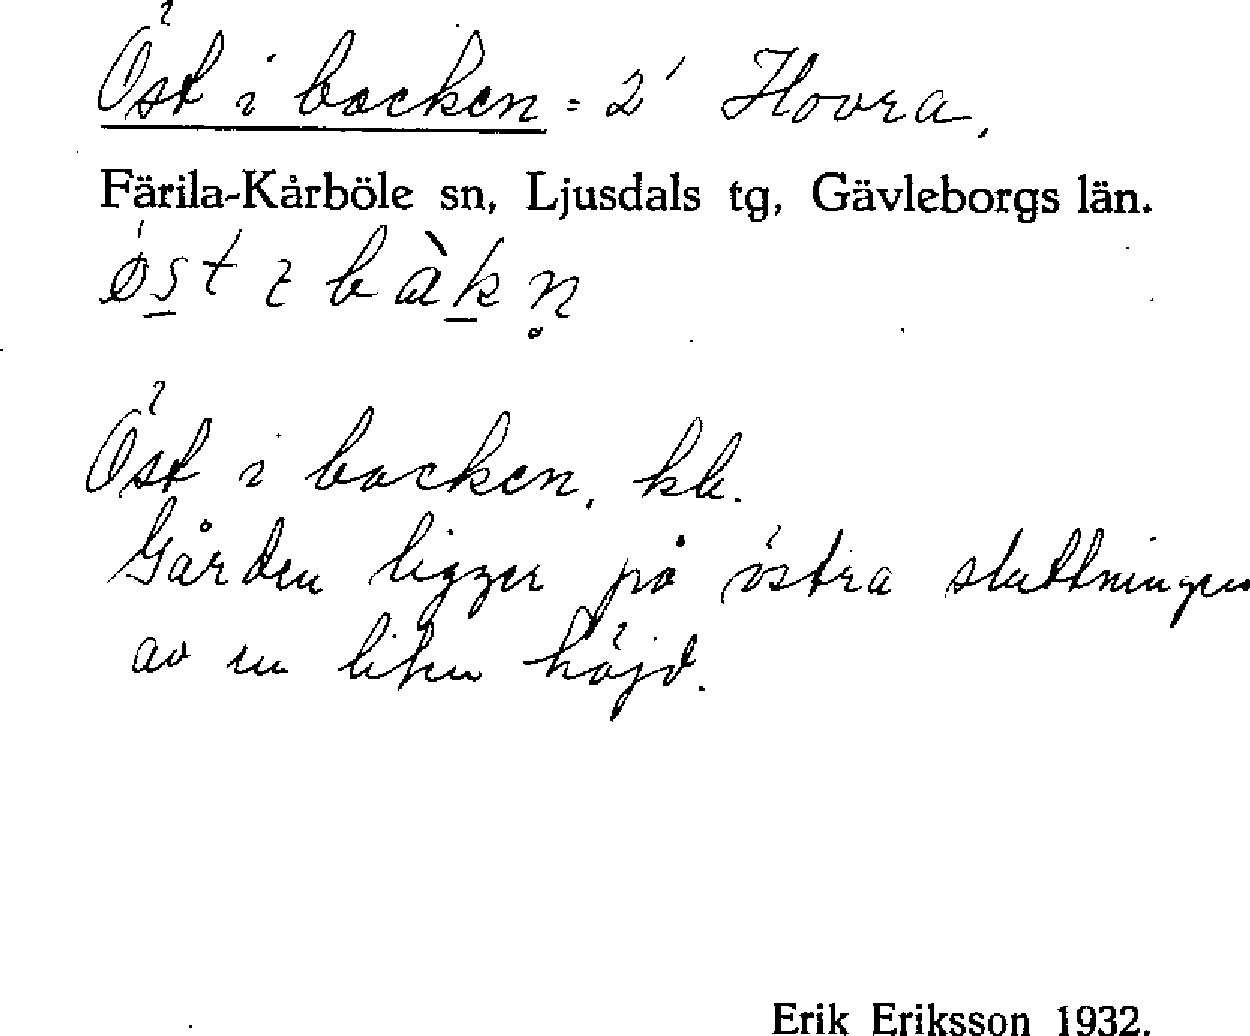 Öst i backen = 2' Hovra.
Färila-Kårböle sn, Ljusdals tg, Gävleborgs län.
øst ɩ bàkn̥
Öst i backen, kk.
Gården ligger på östra sluttningen
av en liten höjd.
Erik Eriksson 1932.